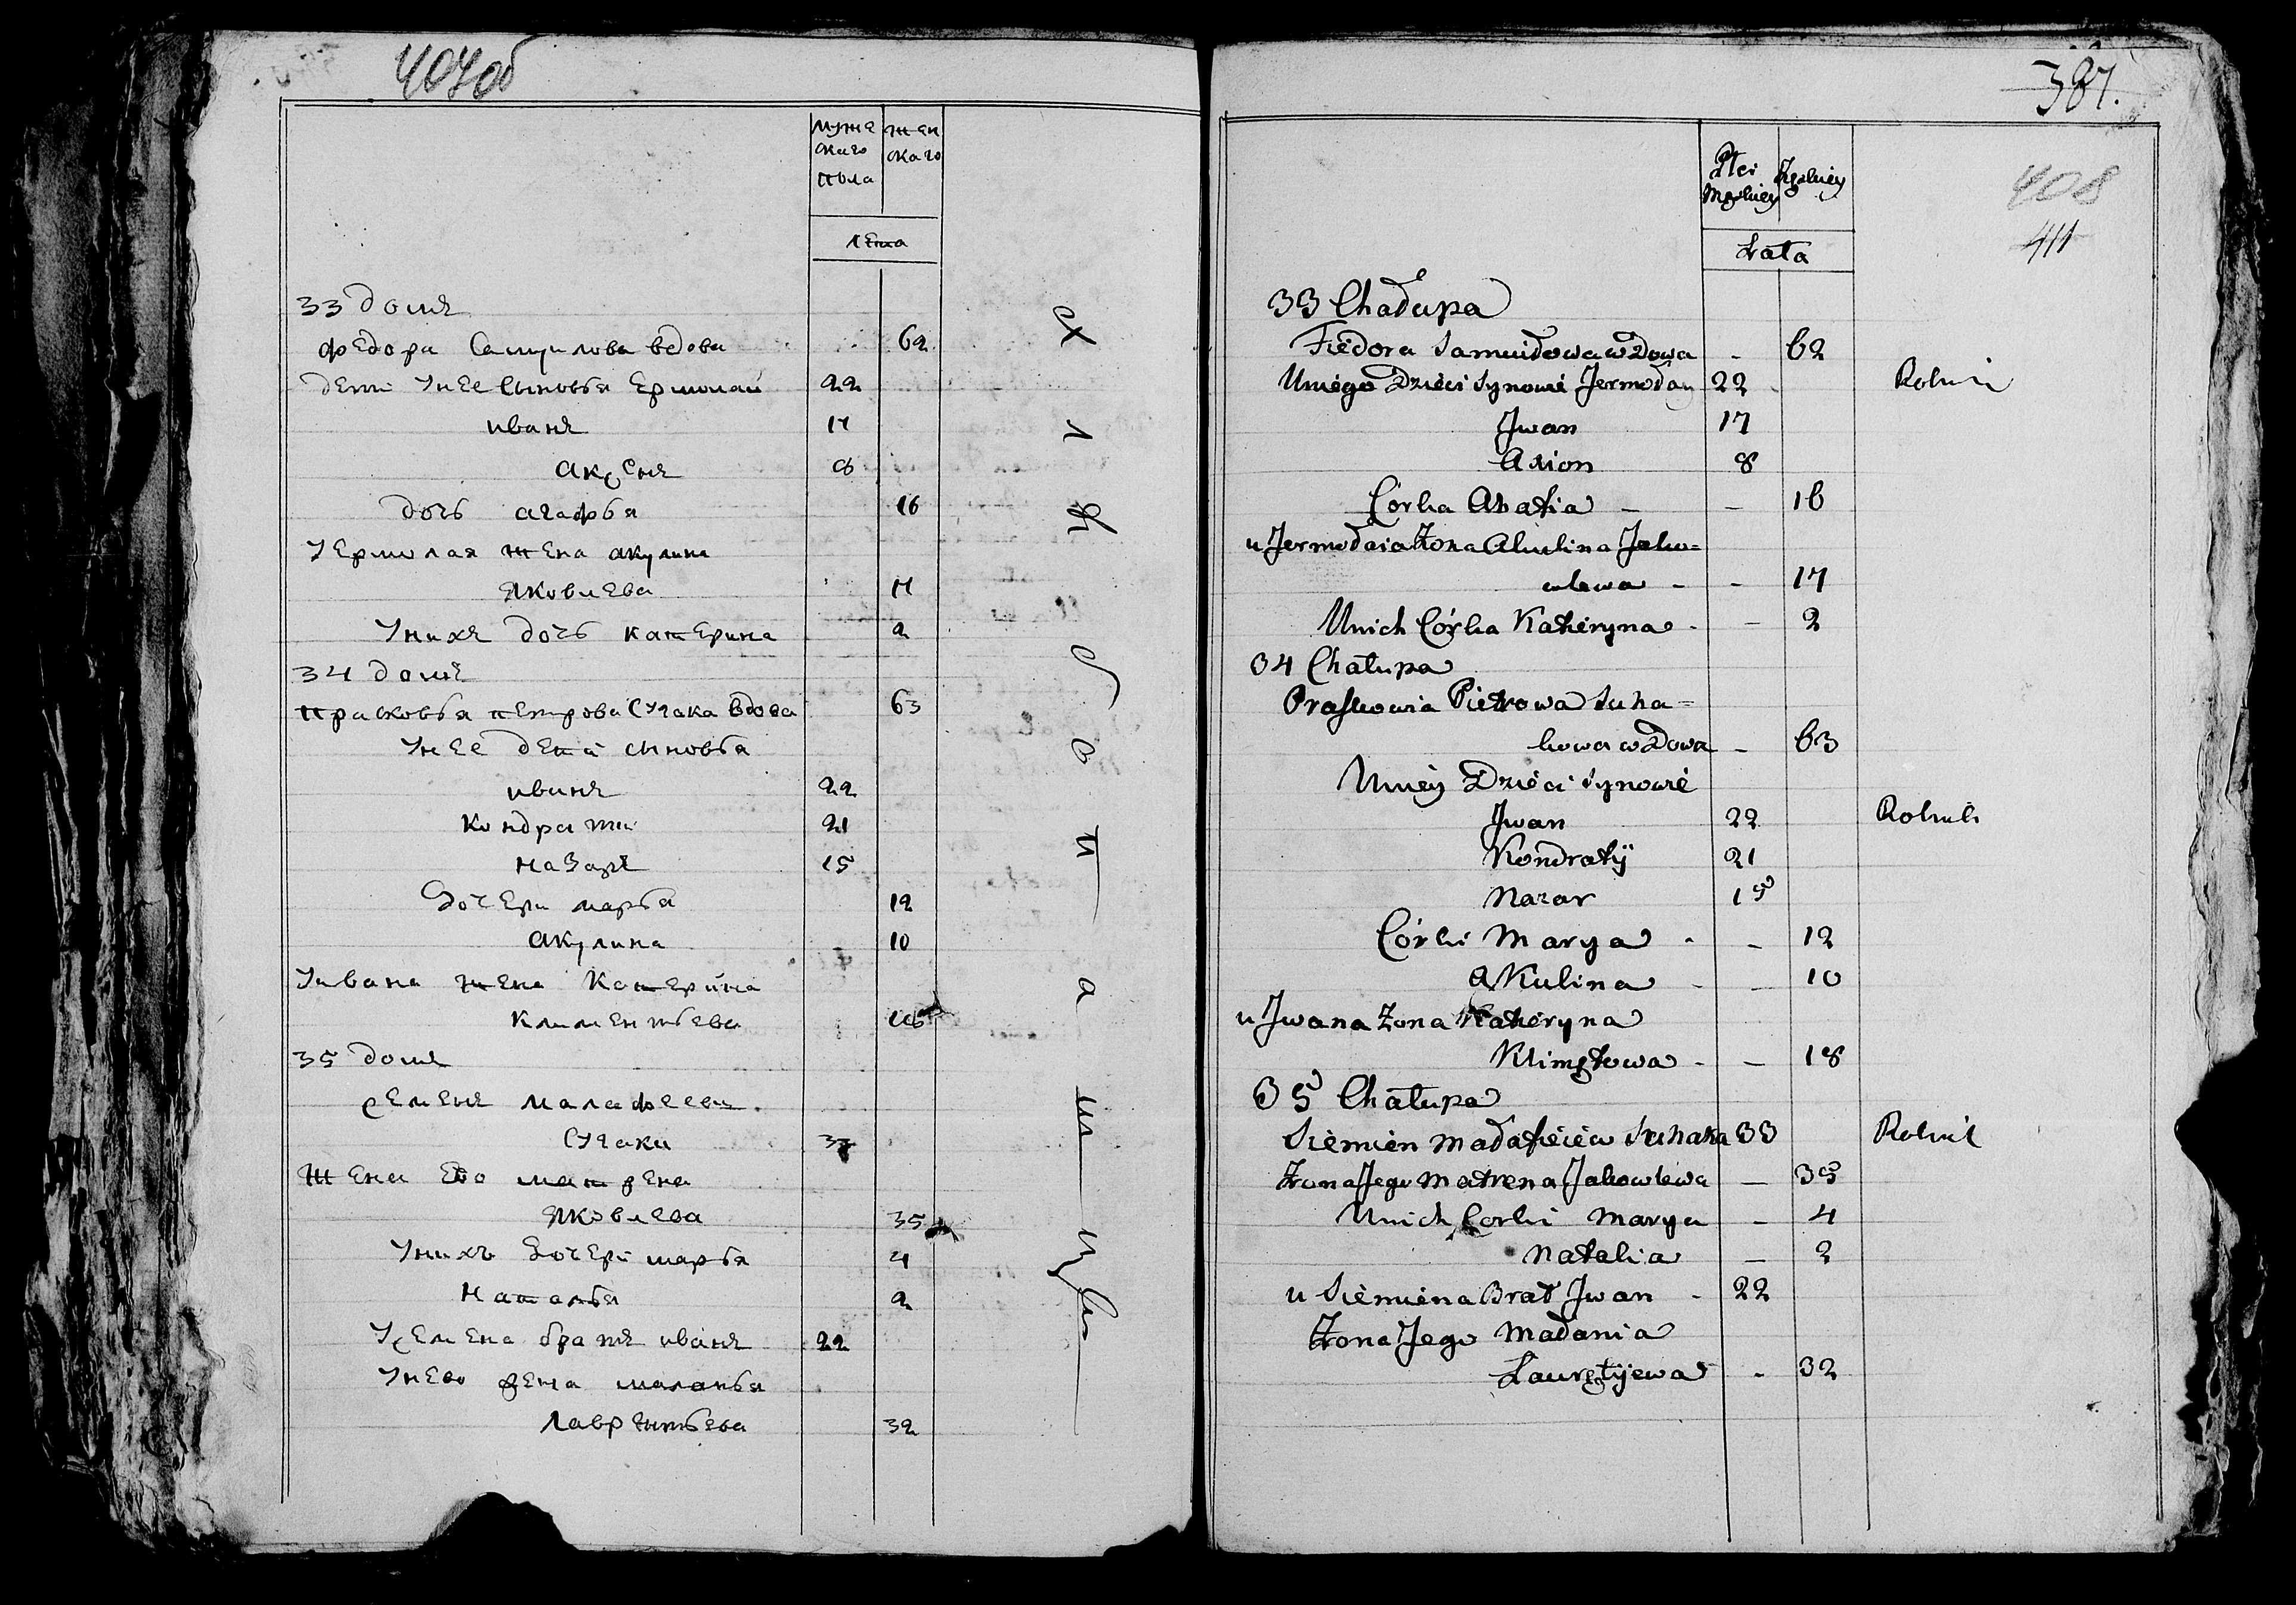 407об
муже
скаго
пола
жен
скаго
лета
33 домъ
федора Самуилова вдова 62
дети унее сыновья Ермолай 22
иванъ 17
аксенъ 8
дочь агафья 16
уермолая жена акулина
яковлева 17
унихъ дочь катерина 2
34 домъ
прасковья петрова Сучака вдова 63
унее дети сыновья
иванъ 22
кондратий 21
назаръ 15
дочери марья 12
акулина 10
уивана жена Катерина
климентьева
35 домъ
семенъ малафеевъ
Сучака
жена ево матрена
яковлева 35
унихъ дочери марья 4
наталья 2
усемена братъ иванъ 22
унево жена маланья
лаврентьева 32
хлебопашцы
387.
408
411
Płci
Męskiey
Żęskiey
Lata
33 Chałupa
Fiedora Samuiłowa wdowa - 62
Uniego Dzieci Synowie Jermołay 22 Rolnik
Jwan 17
Axion 8
Córka Ahafia - - 16
u Jermołaia Żona Akulina Jako=
wlewa - - 17
Unich Córka Kateryna - - 2
34 Chałupa
Praskowia Pietrowa Suha=
kowa wdowa - 63
Uniey Dzieci Synowie
Jwan 22 Rolnik
Kondratÿ 21
Nazar 15
Córki Marya - - 12
Akulina - - 10
u Jwana Żona Kateryna
Klimętowa - - 18
35 Chałupa
Siemien Małafieiew Suhaka 33 Rolnik
Żona Jego Matrena Jakowlewa - 35
Unich Corki Marya - 4
Natalia - 2
u Siemiena Brat Jwan - 22
Żona Jego Małania
Lauretijewa - 32